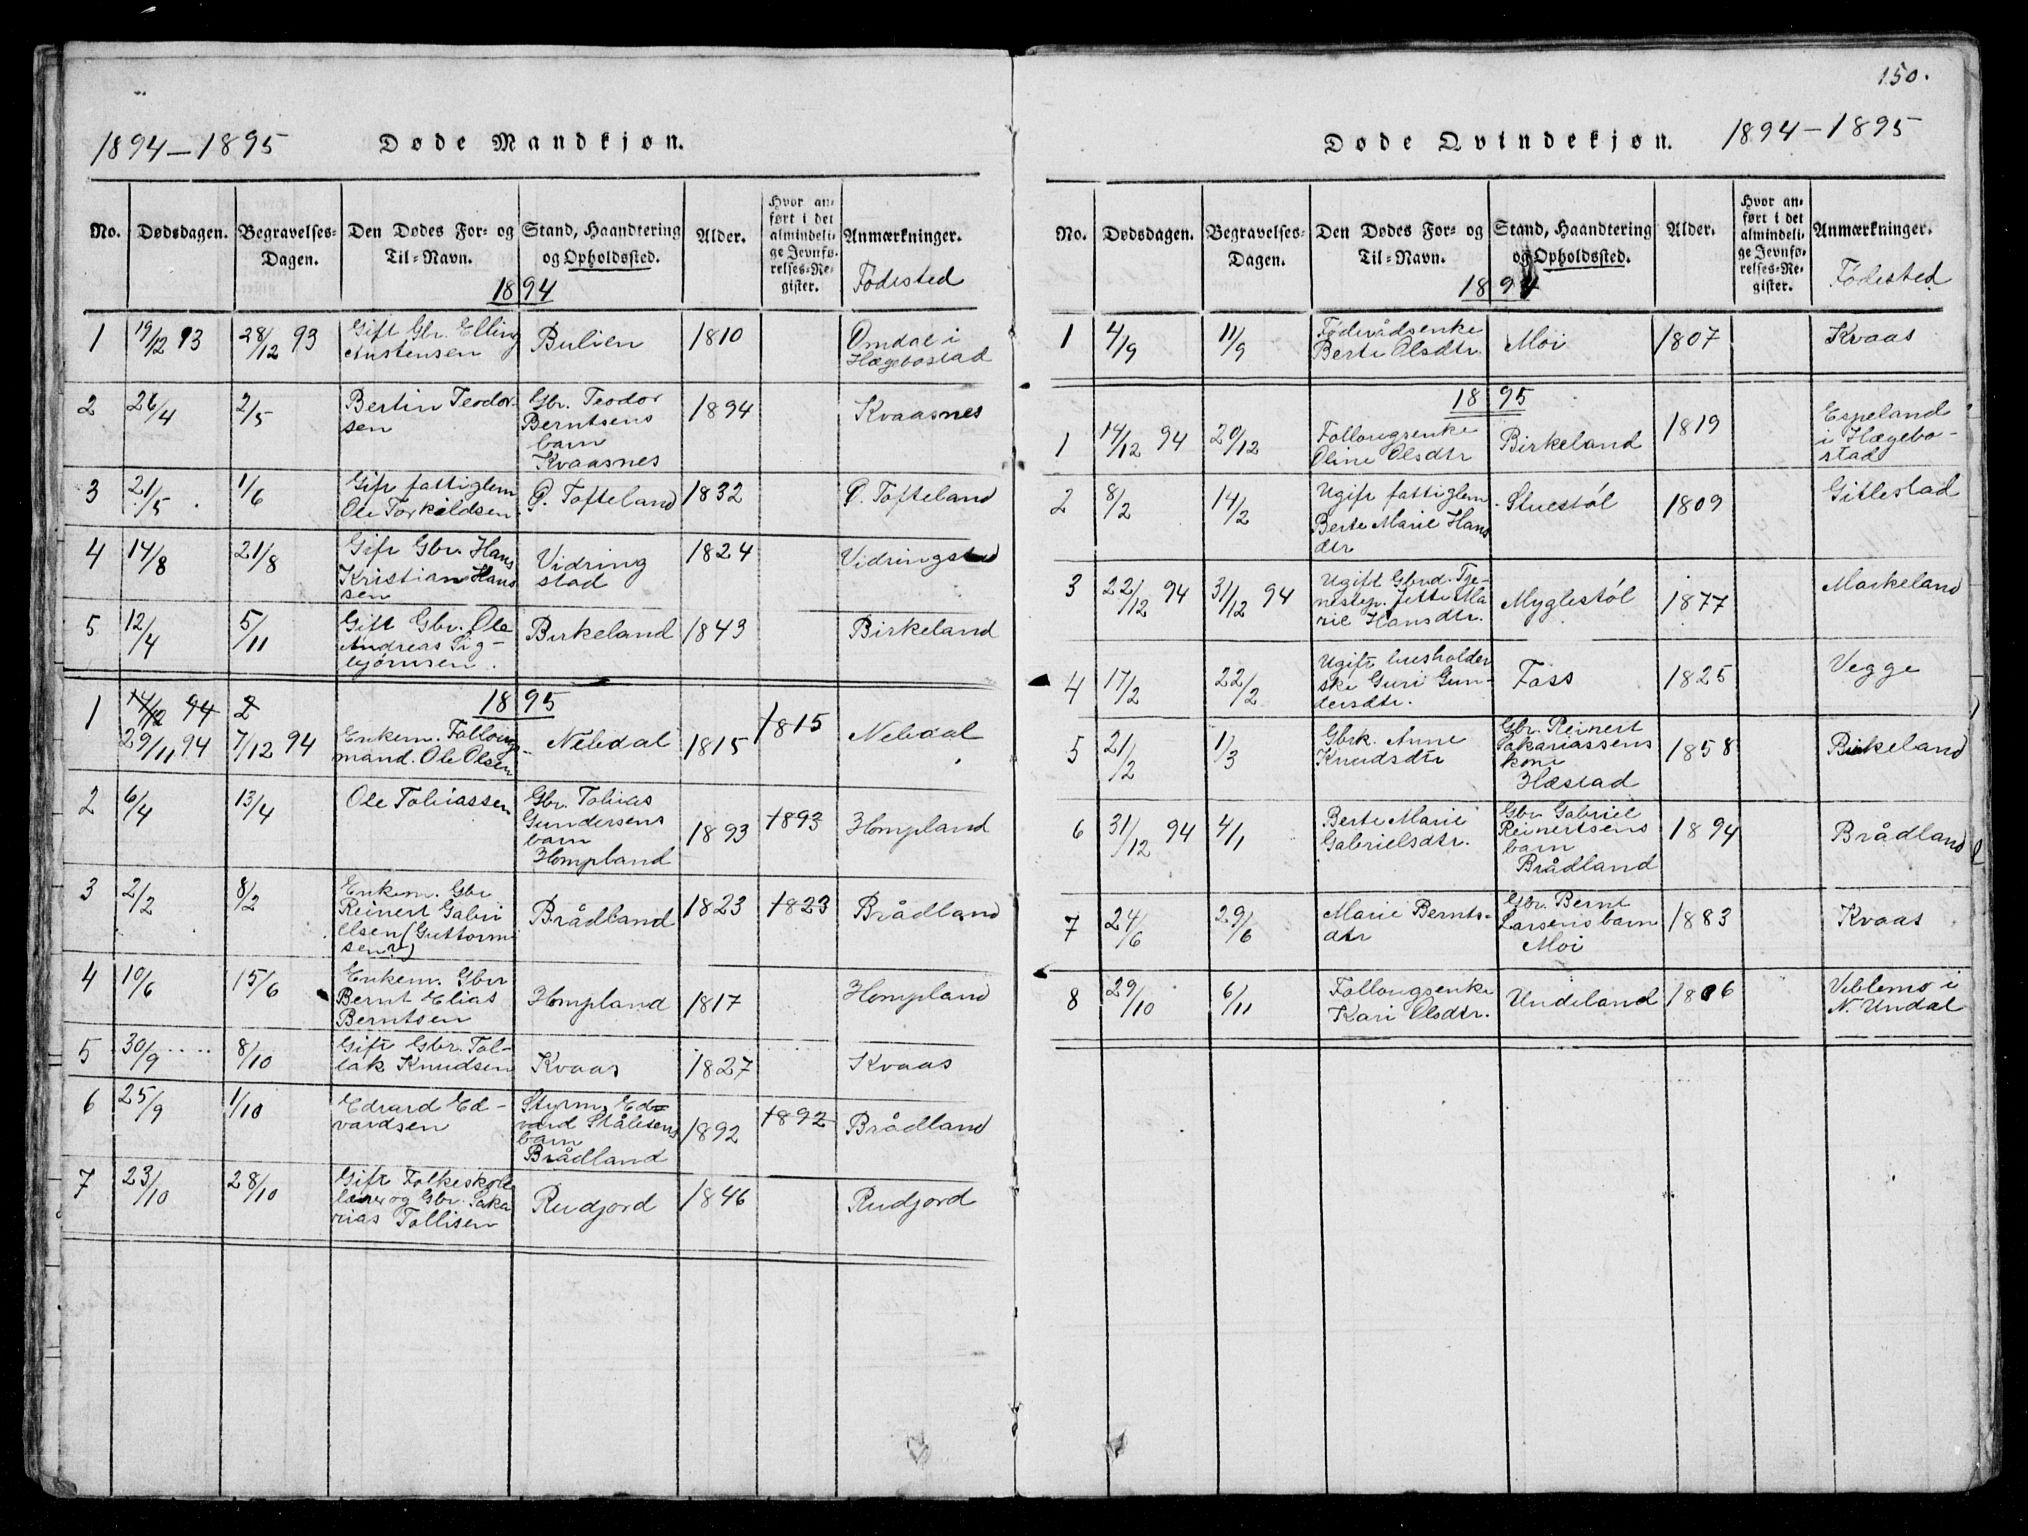 1894-1895
Døde Mandkjøn.
No.
Dødsdagen.
Begravelses-Dagen.
Den Dødes For- og Til-Navn.
Stand, Haandtering og Opholdssted.
Alder.
Hvor anført i det almindelige Jevnførelses-Register.
Anmærkninger.
Fødested
1894
1 19/12 93 28/12 93 Gift Gbr. Elling Austensen Bulien 1810 Omdal i Hægebostad
2 26/4 2/5 Bertin Teodorsen Gbr. Teodor Berntsens barn Kvaasnes 1894 Kvaasnes
3 21/5 1/6 Gift fattiglem Ole Torkildsen Ø. Tofteland 1832 Ø. Tofteland
4 14/8 21/8 Gift Gbr. Hans Kristian Hanssen Vidringstad 1824 Vidringstad
5 12/4 5/11 Gift Gbr. Ole Andreas Sigbjørnsen. Birkeland 1843 Birkeland
1895
1 14/12 94 2
29/11 94 7/12 94 Enkem. Follougsmand. Ole Olsen Nebdal 1815 1815 Nebdal
2 6/4 13/4 Ole Tobiassen Gbr. Tobias Gundersens barn Hompland 1893 1893 Hompland
3 2/2 8/2 Enkem. Gbr Reinert Gabrielsen (Guttormsen?) Brådland 1823 1823 Brådland
4 10/6 15/6 Enkem. Gbr Bernt Elias Berntsen Hompland 1817 Hompland
5 30/9 8/10 Gift Gbr. Tollak Knudsen Kvaas 1827 Kvaas
6 25/9 1/10 Edvard Edvardsen Styrm. Edvard Ståliesens barn Brådland 1892 1892 Brådland
7 23/10 28/10 Gift Folkeskolelærer og Gbr. Sakarias Tollisen Rudjord 1846 Rudjord
150.
Døde Qvindekjøn.
1894-1895
No.
Dødsdagen.
Begravelses-Dagen.
Den Dødes For- og Til-Navn.
Stand, Haandtering og Opholdssted.
Alder.
Hvor anført i det almindelige Jevnførelses-Register.
Anmærkninger.
Fødested
1894
1 4/9 11/9 Føderådsenke Berte Olsdtr. Moi 1807 Kvaas
1895
1 14/12 94 20/12 Follougsenke Oline Olsdtr Birkeland 1819 Espeland i Hægebostad
2 8/2 14/2 Ugift fattiglem Berte Marie Hansdtr Stuestøl 1809 Gitlestad
3 22/12 94 31/12 94 Ugift Gbrd. Tjenestep. Jette Marie Hansdtr. Myglestøl 1877 Markeland
4 17/2 22/2 Ugift husholderske Guri Gundersdtr. Foss 1825 Vegge
5 21/2 1/3 Gbrk. Anne Knudsdtr Gbr. Reinert Sakariassens kone Hæstad 1858 Birkeland
6 31/12 94 4/1 Berte Marie Gabrielsdtr. Gbr Gabriel Reinertsens barn Brådland 1894 Brådland
7 24/6 29/6 Marie Berntsdtr Gbr. Bernt Larsens barn Moi 1883 Kvaas
8 29/10 6/11 Follougsenke Kari Olsdtr. Undeland 1806 Veblemo i N. Undal